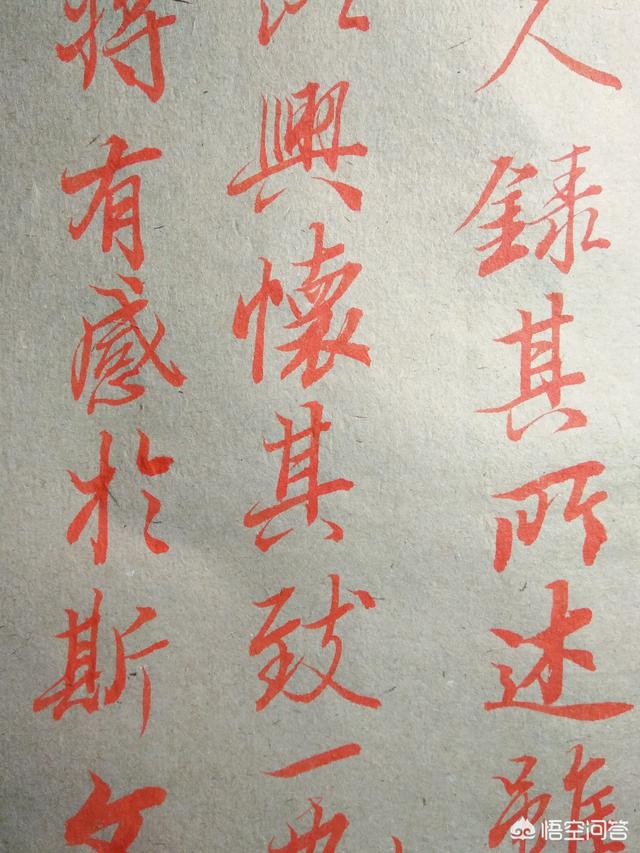 人錄其所述雖
以興懷其致一也
將有感於斯文
悟空问答